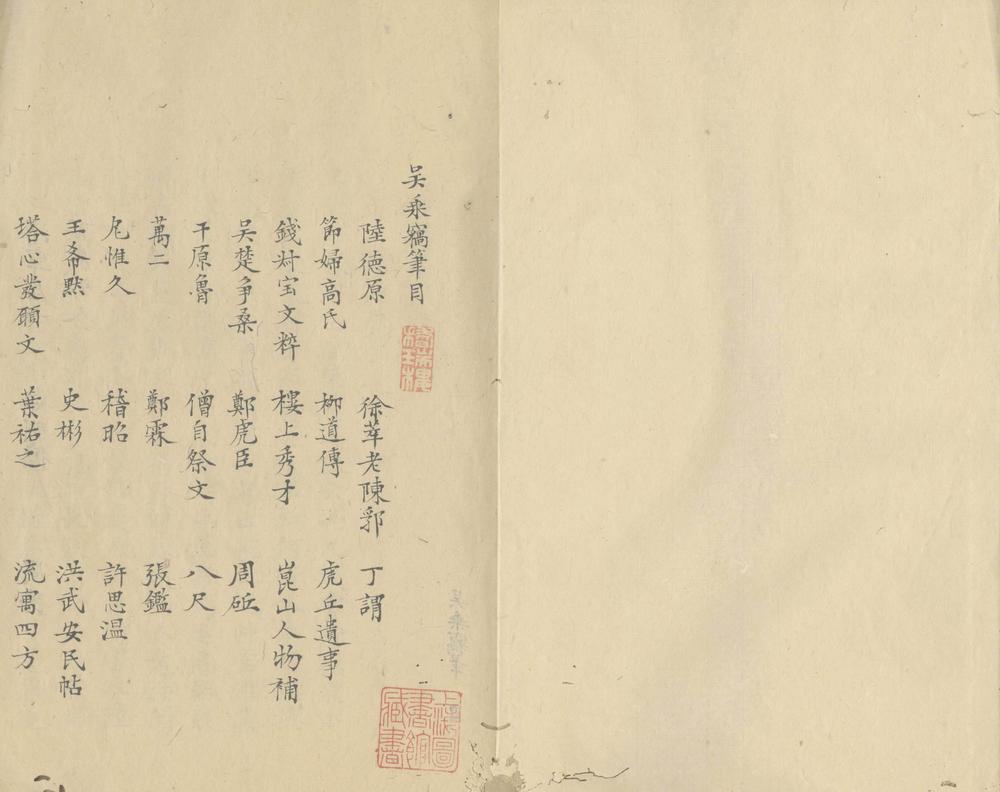 吴乘竊筆目
陸德原 徐萃老陳郭 丁謂
節婦高氏 柳道傳 虎丘遺事
錢尌宝文粹 樓上秀才 崑山人物補
吴楚争桑 鄭虎臣 周砥
干原魯 僧自祭文 八尺
萬二 鄭霖 張鑑
尣惟久 稽昭 許思温
王希默 史彬 洪武安民帖
塔心發願文 葉祐之 流寓四方
上海圖書館藏書